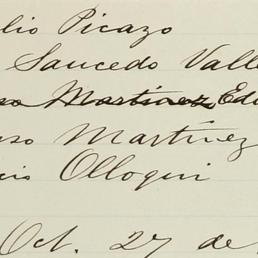 lio Picazo
Saucedo Valle
so Martínez Edu
uso Martínez
cio Olloqui
Oct. 27 de